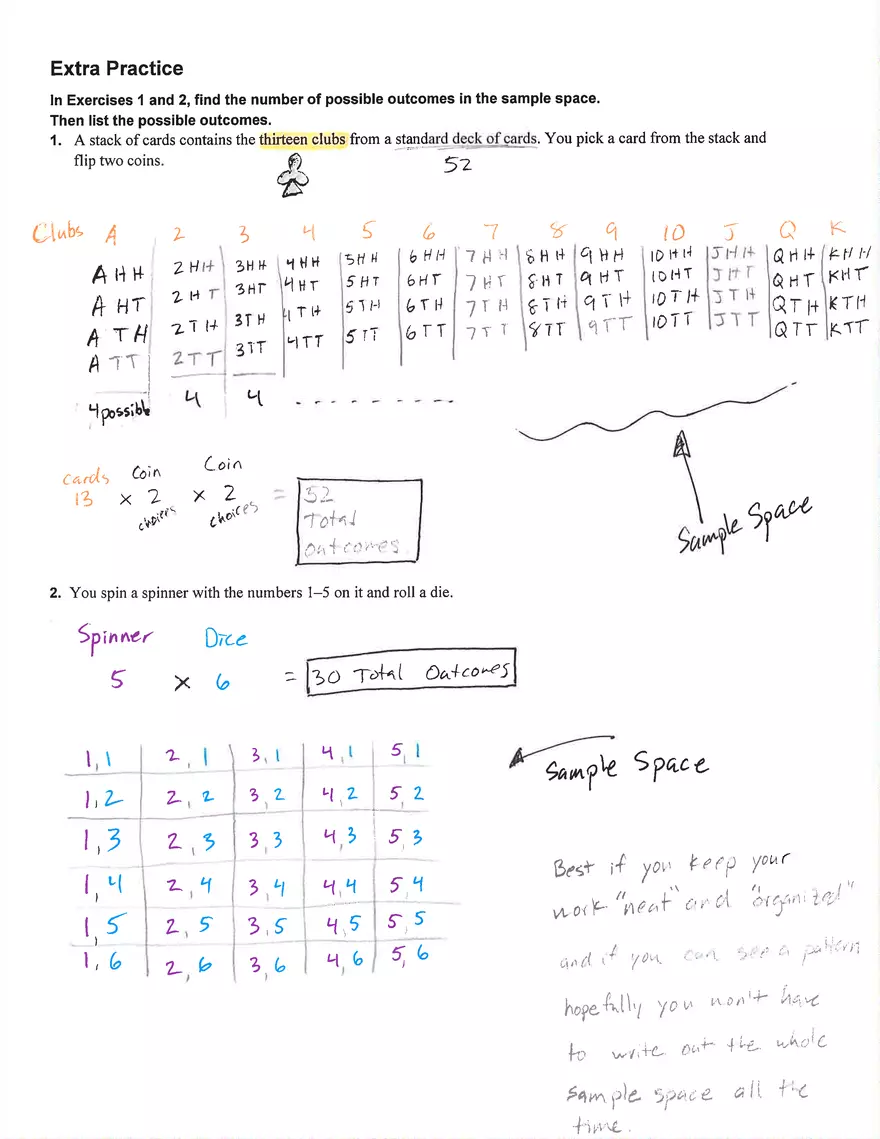 Extra Practice
In Exercises 1 and 2, find the number of possible outcomes in the sample space.
Then list the possible outcomes.
1. A stack of cards contains the thirteen clubs from a standard deck of cards. You pick a card from the stack and
flip two coins.
52
Clubs A 2 3 4 5 6 7 8 9 10 J Q K
AHH 2HH 3HH 4HH 5HH 6HH 7HH 8HH 9HH 10HH JHH QHH KHH
AHT 2HT 3HT 4HT 5HT 6HT 7HT 8HT 9HT 10HT JHT QHT KHT
ATH 2TH 3TH 4TH 5TH 6TH 7TH 8TH 9TH 10TH JTH QTH KTH
ATT 2TT 3TT 4TT 5TT 6TT 7TT 8TT 9TT 10TT JTT QTT KTT
4 possible 4 4 - - - - - - - -
Cards Coin Coin
13 x 2 x 2 = 52
choices choices Total
outcomes
Sample Space
2. You spin a spinner with the numbers 1–5 on it and roll a die.
Spinner Dice
5 x 6 = 30 Total Outcomes
1,1 2,1 3,1 4,1 5,1
1,2 2,2 3,2 4,2 5,2
1,3 2,3 3,3 4,3 5,3
1,4 2,4 3,4 4,4 5,4
1,5 2,5 3,5 4,5 5,5
1,6 2,6 3,6 4,6 5,6
Sample Space
Best if you keep your
work "neat" and "organized"
and if you can see a pattern
hopefully you won't have
to write out the whole
sample space all the
time.